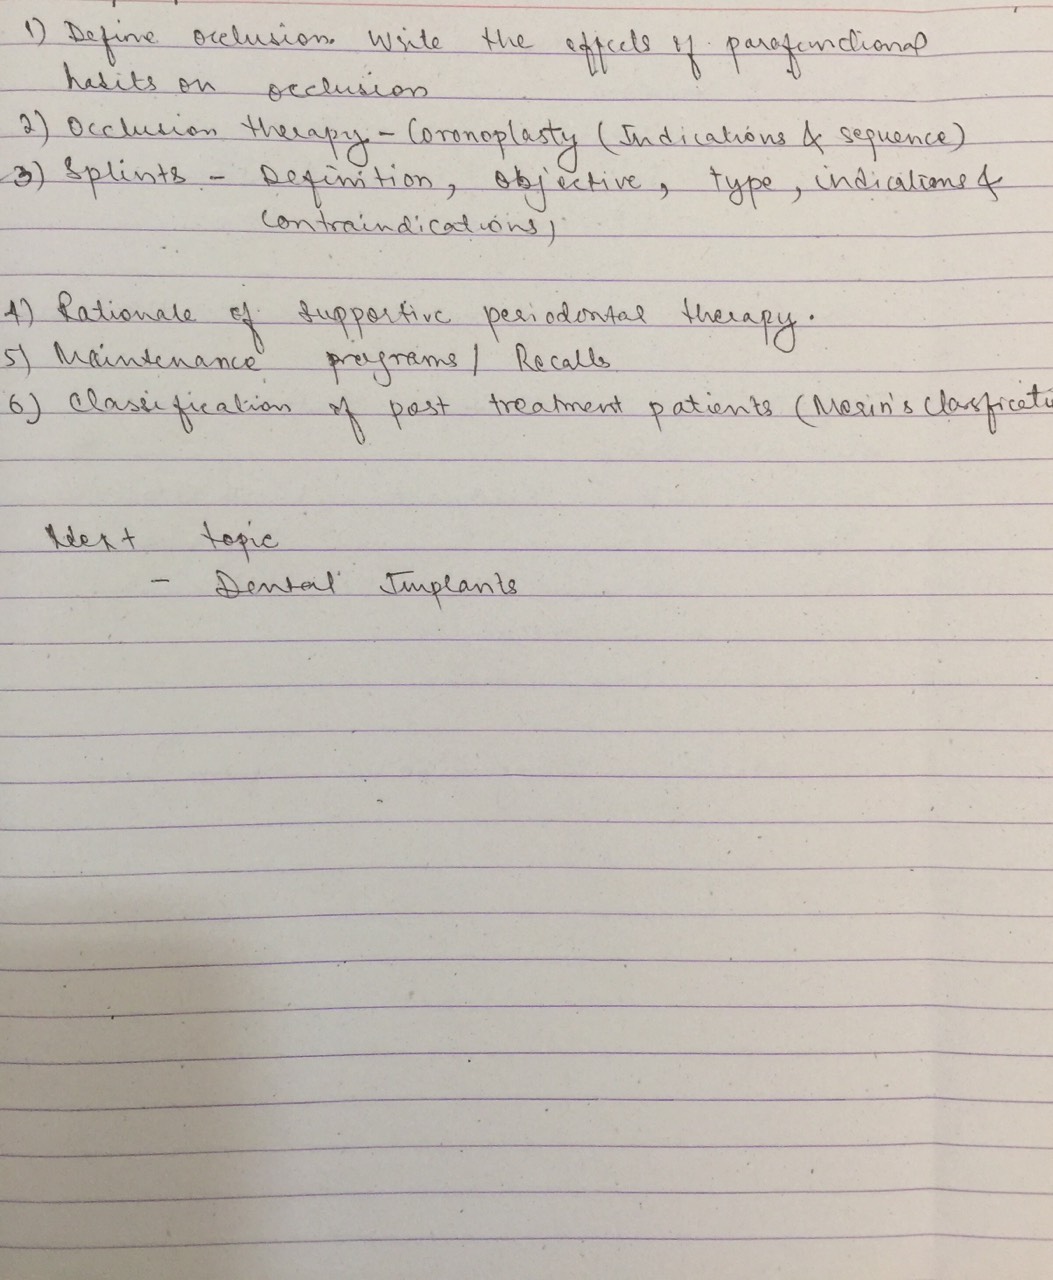 1) Define occlusion. Write the effects of parafunctional
habits on occlusion
2) Occlusion therapy - Coronoplasty (Indications & sequence)
3) Splints - Definition, objective, type, indications &
contraindications)
4) Rationale of supportive periodontal therapy.
5) Maintenance programs / Recalls
6) Classification of post treatment patients (Merin's
Next topic
- Dental Implants